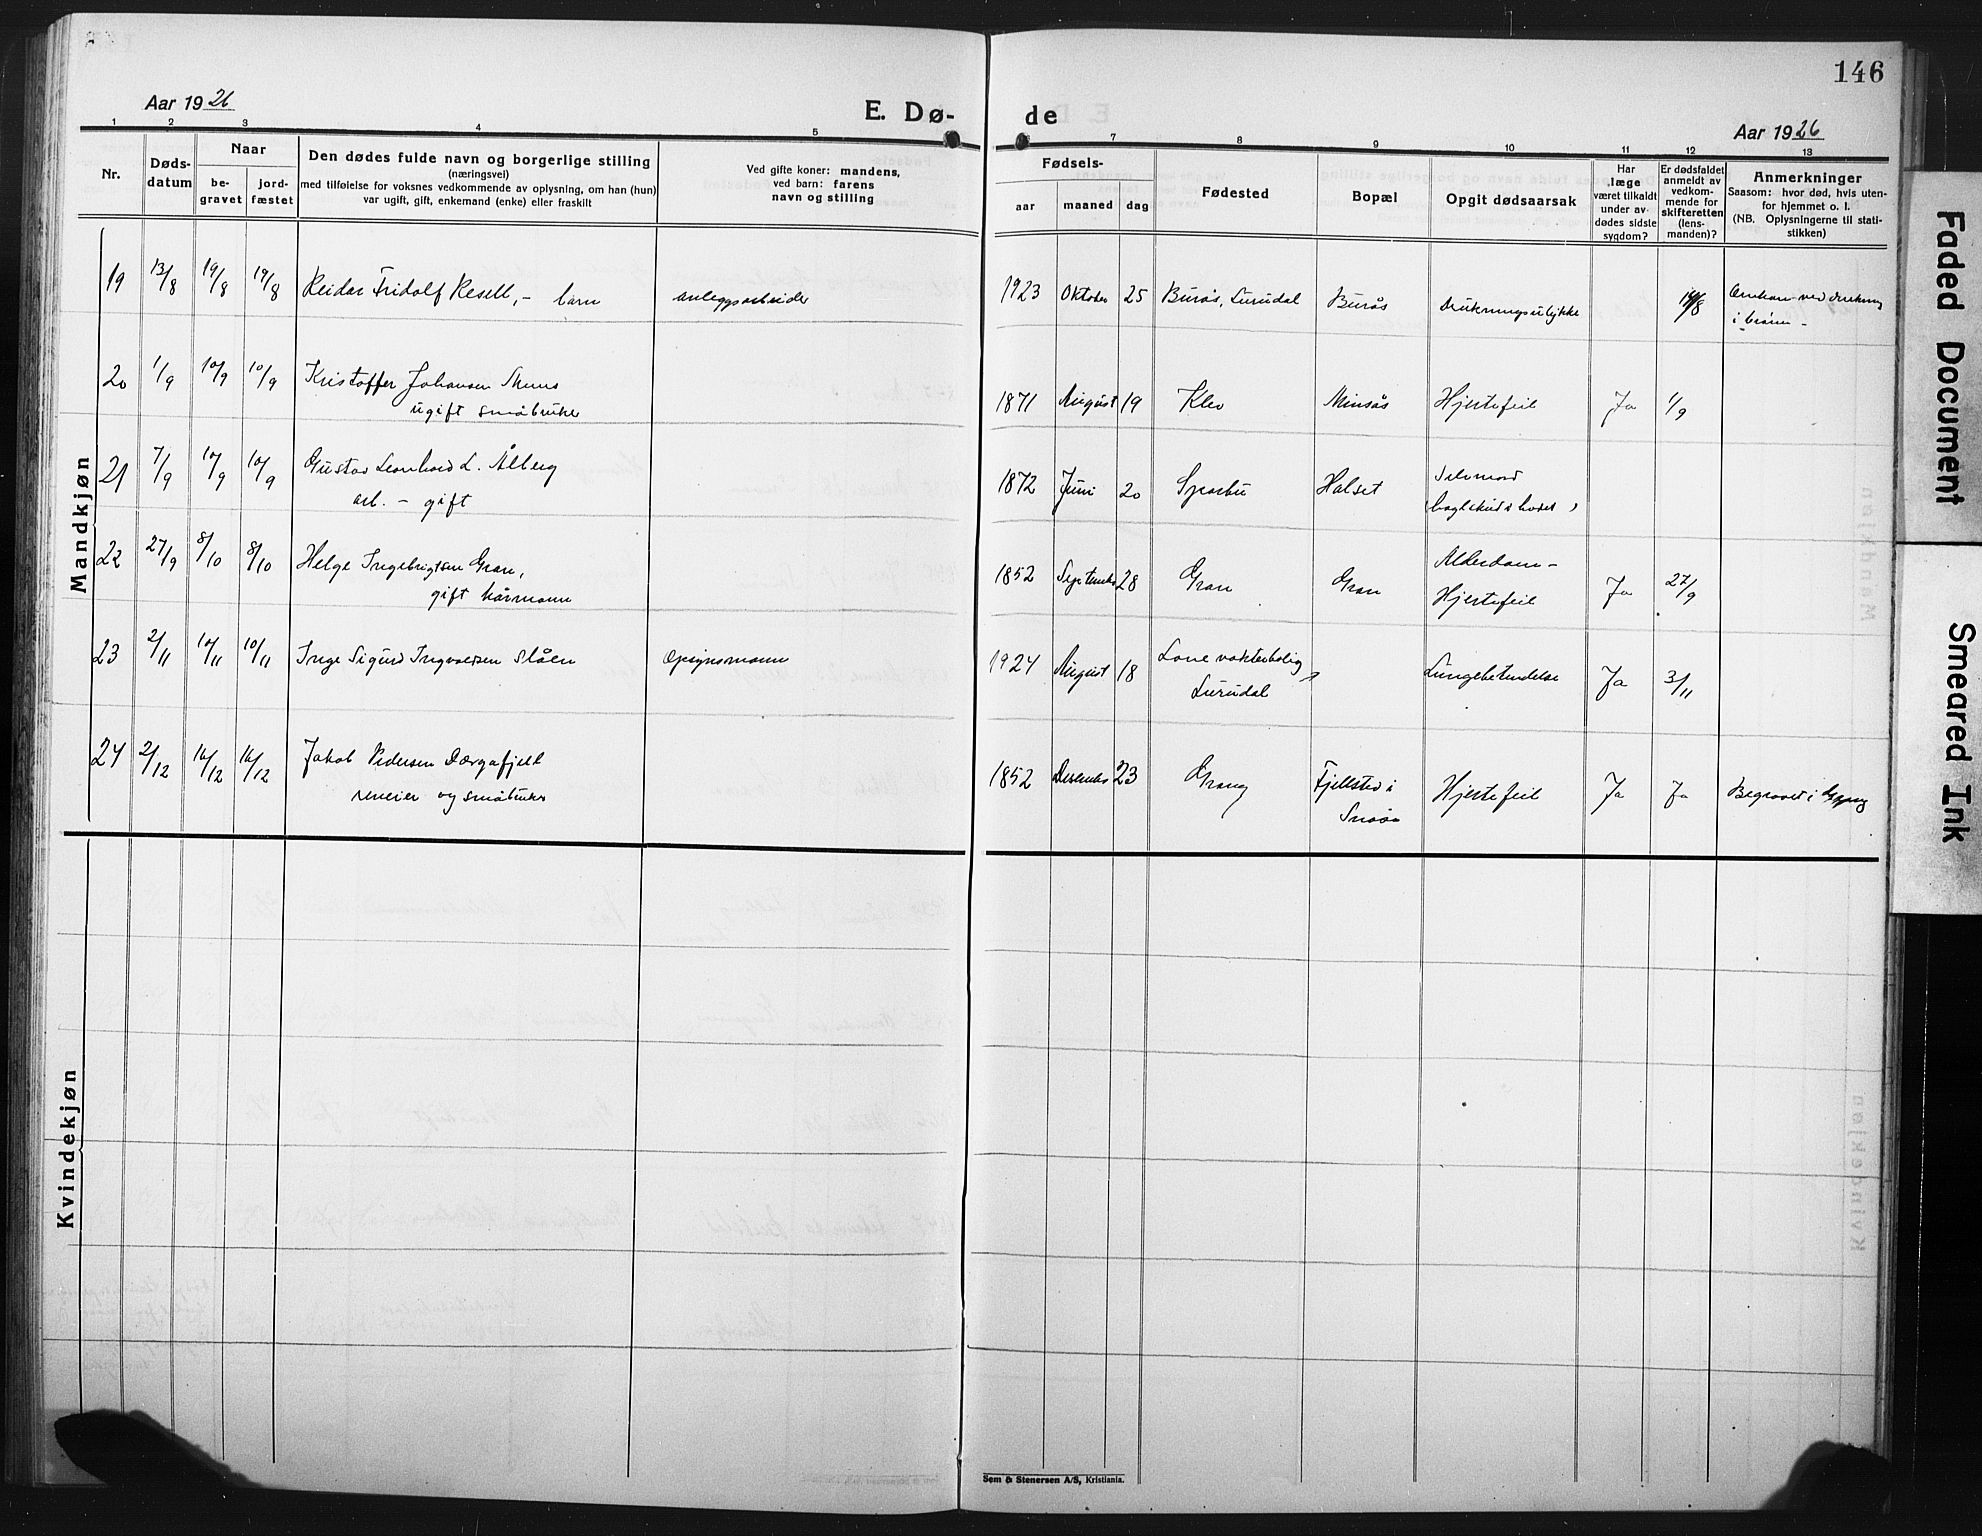 146
Aar 1926
E. Dø-
de
Aar 1926
1 2 3 4 5 6 7 8 9 10 11 12 13
Nr.
Døds-
datum
Naar
be-
gravet
jord-
fæstet
Den dødes fulde navn og borgerlige stilling
(næringsvei)
med tilføielse for voksnes vedkommende av oplysning, om han (hun)
var ugift, gift, enkemand (enke) eller fraskilt
Ved gifte koner: mandens,
ved barn: farens
navn og stilling
Fødsels-
aar
maaned
dag
Fødested
Bopæl
Opgit dødsaarsak
Har
læge
været tilkaldt
under av-
dødes sidste
sygdom?
Er dødsfaldet
anmeldt av
vedkom-
mende for
skifteretten
(lens-
manden)?
Anmerkninger
Saasom: hvor død, hvis uten-
for hjemmet o. l.
(NB. Oplysningerne til stati-
stikken)
Mandkjøn
19 13/8 19/8 19/8 Reidar Fridolf Resell, - barn anleggsarbeider 1923 Oktober 25 Burås, Lurudal Burås drukningsulykke 19/8
ved drukning
i brønn -
20 1/9 10/9 10/9 Kristoffer Johansen
ugift småbruker
1871 August 19 Klev Minsås Hjertefeil Ja 1/9
21 7/9 10/9 10/9 Gustav Leonhard L. Ålberg
arb. - gift
1872 Juni 20 Sparbu Halset Selvmord
22 27/9 8/10 8/10 Helge Ingebrigtsen Gran,
gift kårmann
1852 September 28 Gran Gran Alderdom -
Hjertefeil Ja 27/9
23 2/11 10/11 10/11 Inge Sigurd Ingvaldsen Slåen opsynsmann 1924 August 18 vokterbolig
Lurudal
Lungebetendelse Ja 3/11
24 2/12 16/12 16/12 Jakob Pedersen Dærgafjell
reneier og småbruker
1852 Desember 23 Grong Fjellsted i
Snåsa
Hjertefeil Ja Ja Begravet i Grong
Kvindekjøn
Sem & Stenersen A/S, Kristiania.
Faded Document
Smeared Ink